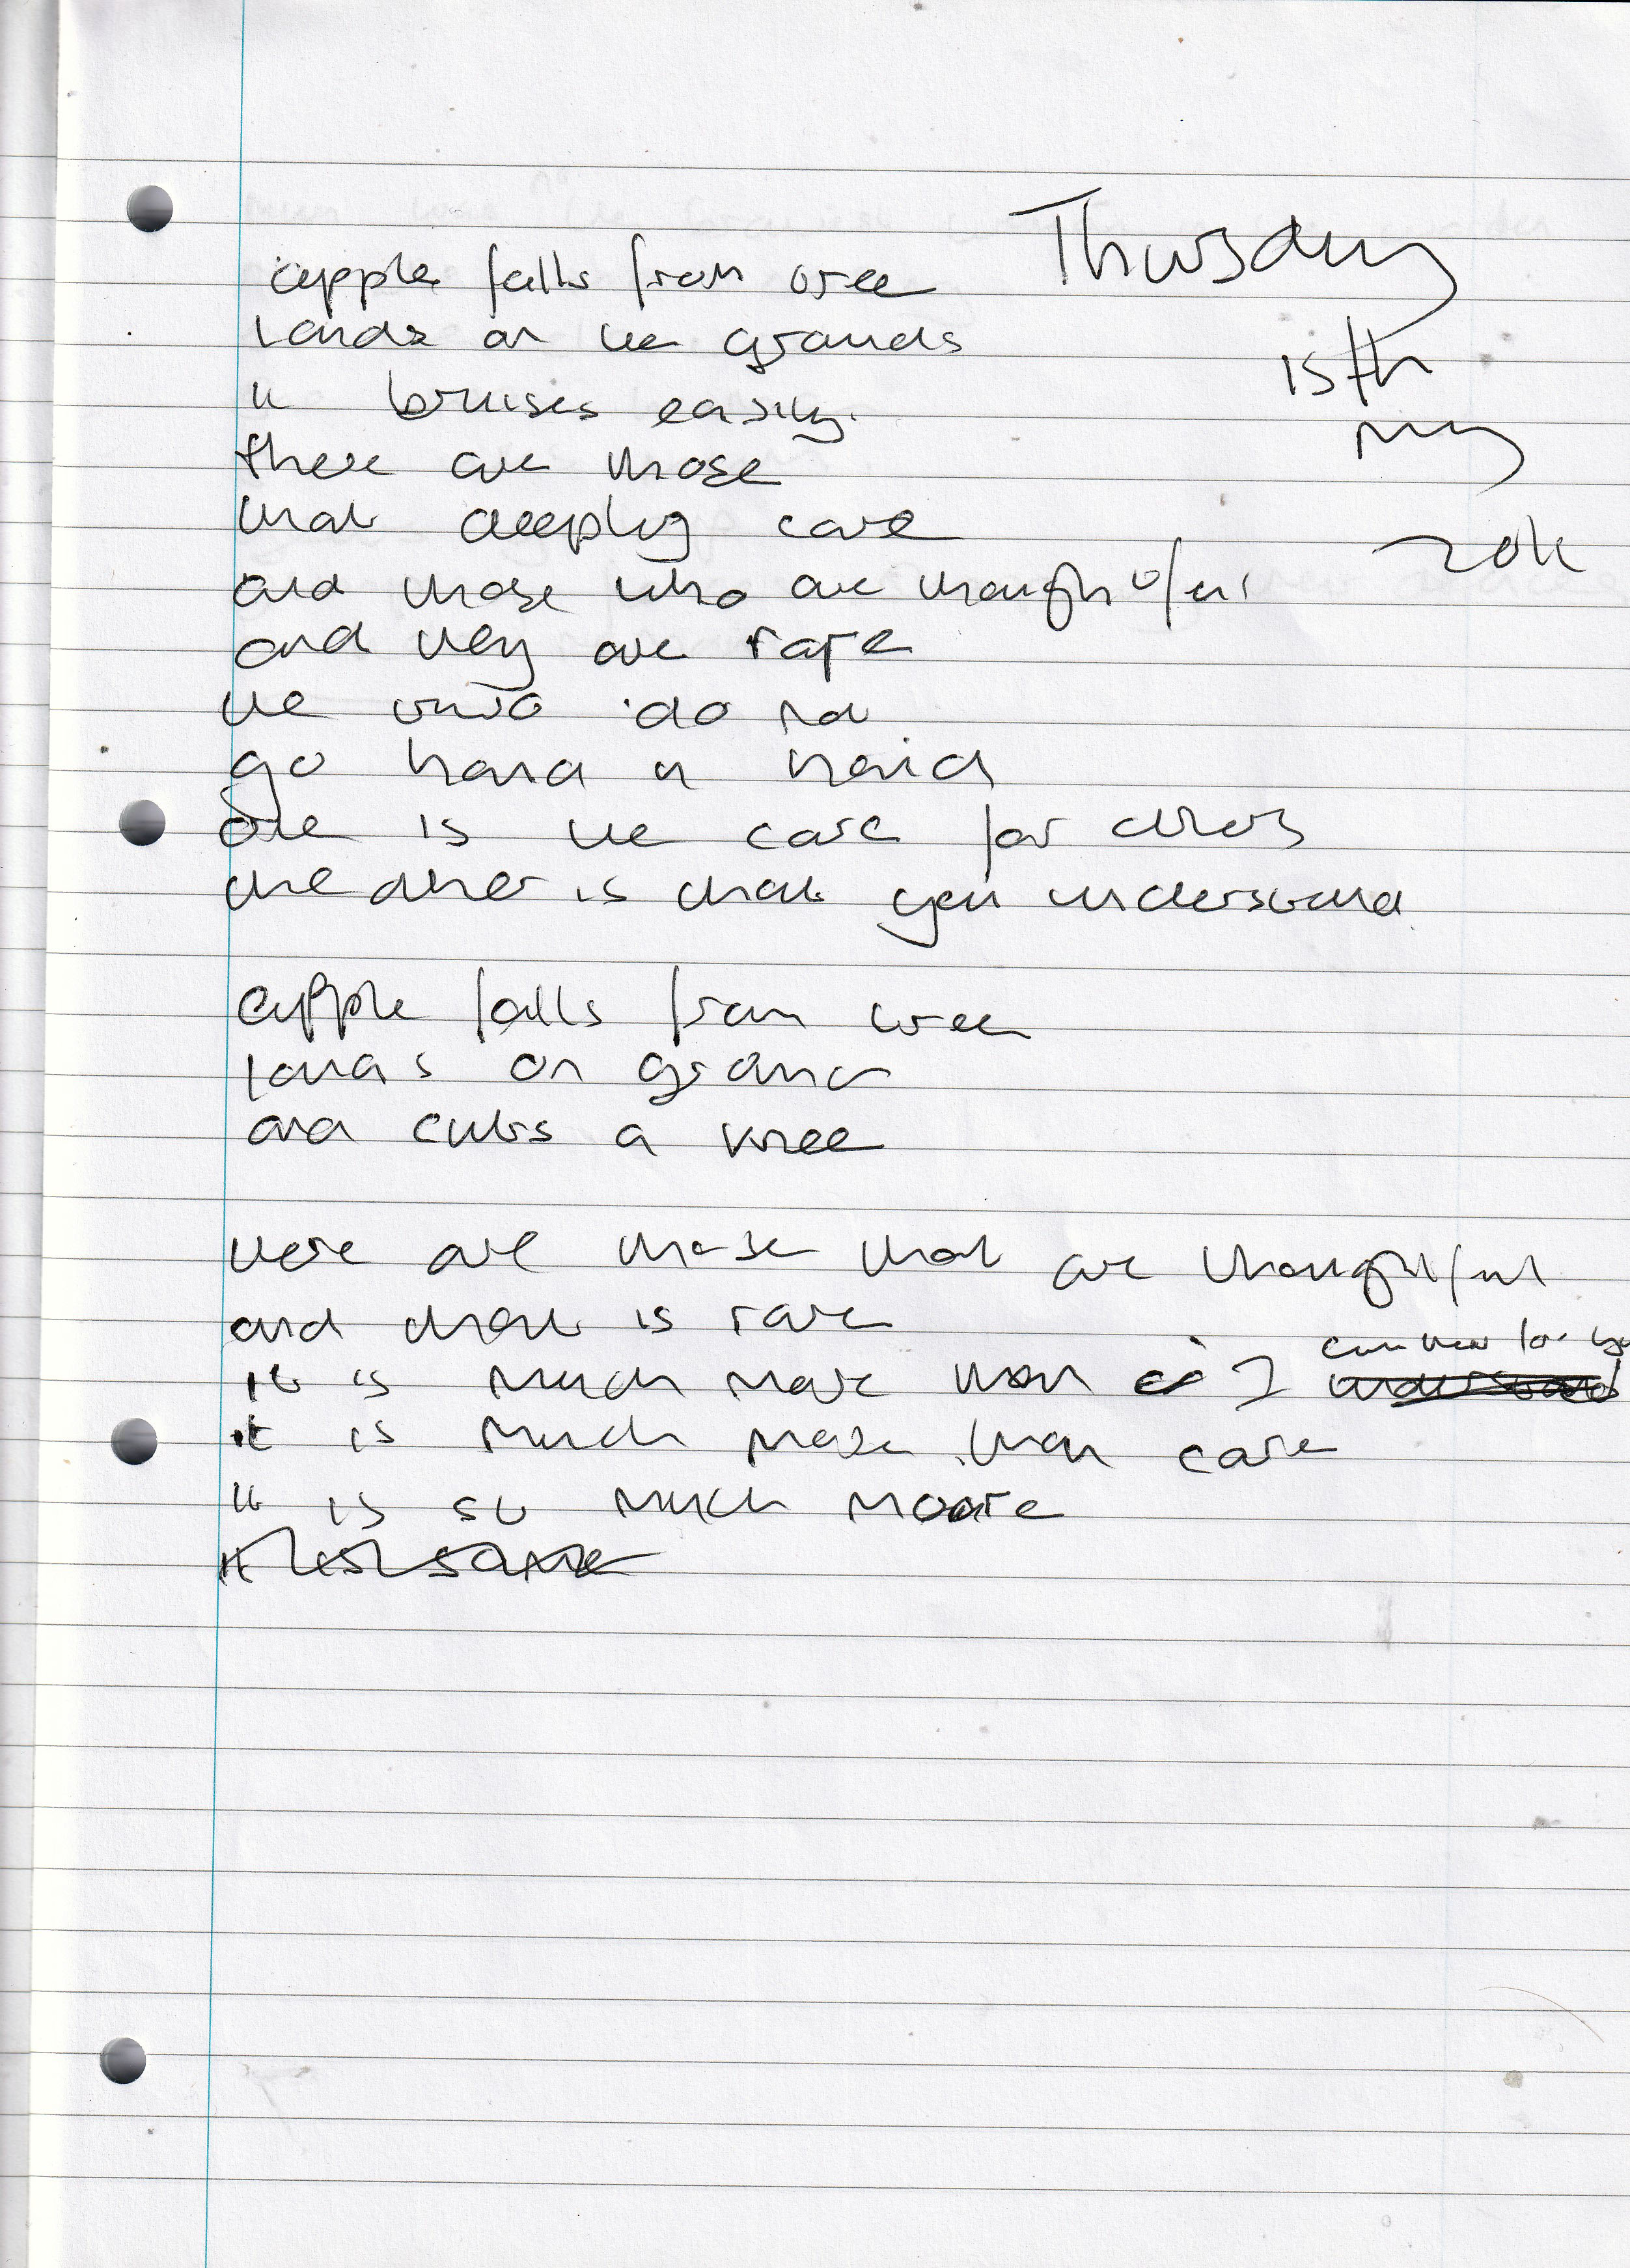 Thursday
15th
May
2014
apple falls from tree
lands on the grounds
it bruises easily.
there are those
that deeply care
and those who are thoughtful
and they are rare
the two do not
go hand in hand
one is the care for others
the other is that you understand
apple falls from tree
lands on ground
and cuts a knee
there are those that are thoughtful
and that is rare
it is much more than I can
it is much more than care
it is so much more